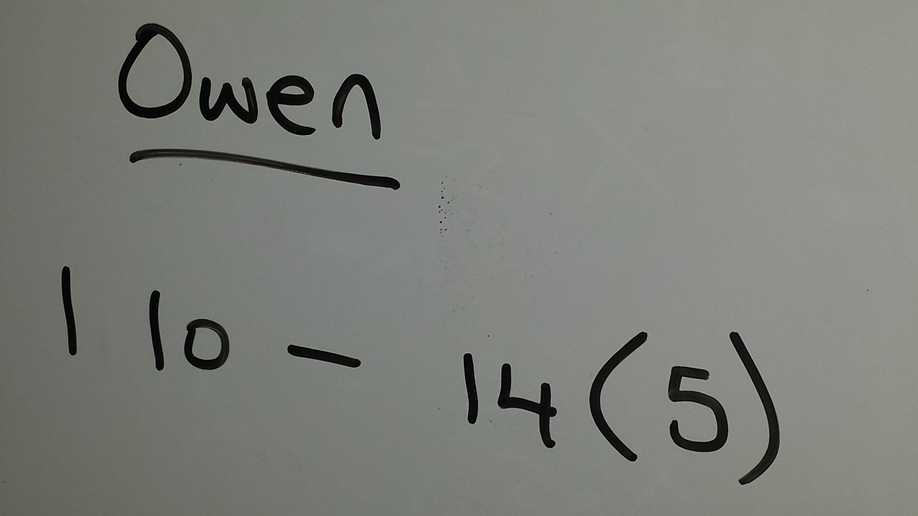 Owen
1 10 - 14 (5)